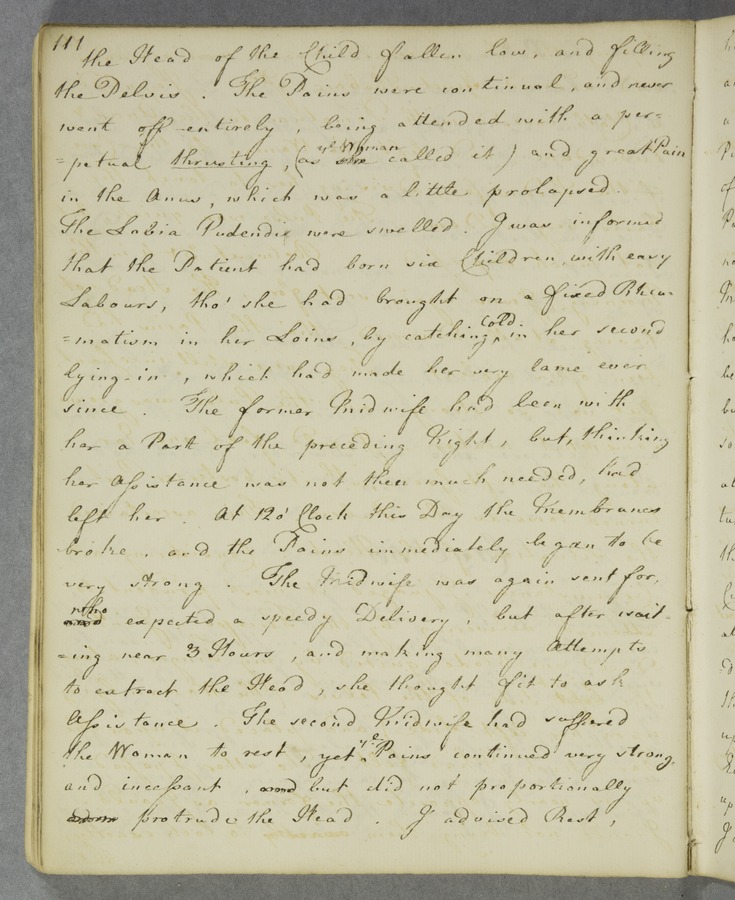 111
the Head of the Child fallen low, and filling
the Pelvis. The Pains were continual, and never
went off entirely, being attended with a per-
=petual thrusting, (as ye Woman called it) and great Pain
in the Anus, which was a little prolapsed.
The Labia Pudendi were swelled. I was informed
that the Patient had born six Children, with easy
Labours, tho' she had brought on a fixed Rheu-
=matism in her Loins, by catching Cold in her second
lying-in, which had made her very lame ever
since. The former Midwife had been with
her a Part of the preceding Night, but, thinking
her Assistance was not then much needed, had
left her. At 12 o' Clock this Day the Membranes
broke, and the Pains immediately began to be
very strong. The Midwife was again sent for,
who expected a speedy Delivery, but after wait-
=ing near 3 Hours, and making many Attempts
to extract the Head, she thought fit to ask
Assistance. The second Midwife had suffered
the Woman to rest, yet ye Pains continued very strong,
and incessant, but did not proportionally
protrude the Head. I advised Rest,